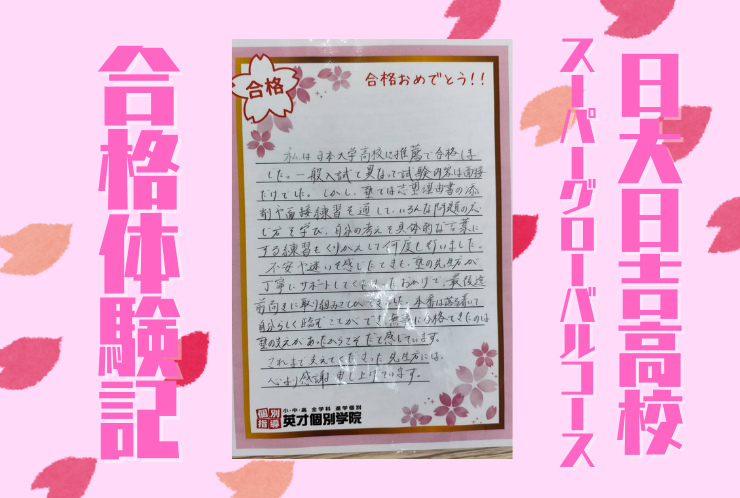 日大日吉高校
スーパーグローバルコース
合格体験記
合格
合格おめでとう!!
私は日本大学高校に推薦で合格しま
した。一般入試と異なって試験内容は面接
だけでした。しかし、塾では志望理由書の添
削や面接練習を通して、いろんな問題の応
じ方を学び、自分の考えを具体的な言葉に
する練習をくりかえして何度も行いました。
不安や迷いを感じたときも、塾の先生方が
丁寧にサポートしてくださったおかげで、最後まで
前向きに取り組むことができました。本番は落ち着いて
自分らしく臨むことができ、無事に合格できたのは
塾の支えがあったからこそだと感じています。
これまで支えてくださった先生方には、
心より感謝申し上げています。
個別指導
小・中・高 全学科 進学個別
英才個別学院